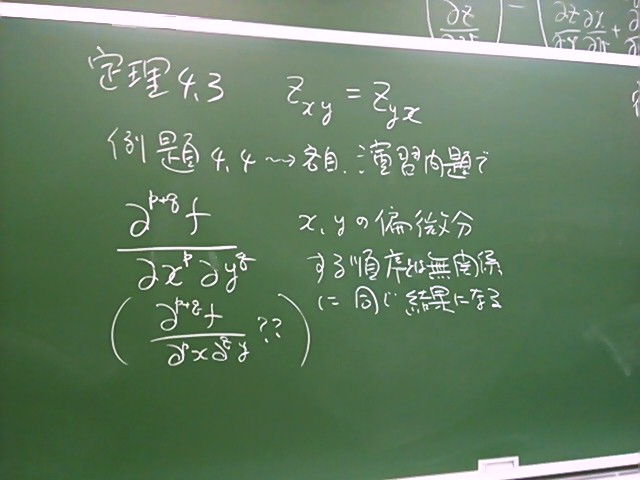 (∂z/
(∂z/∂x ∂x/ +
定理4.3 z_{xy} = z_{yx}
例題4.4 〜→ 各自、演習問題で
∂^{p+q} f / ∂x^p ∂y^q
x, yの偏微分
する順序は無関係
に同じ結果になる
(∂^{p+q} f / ∂^p x ∂^q y ??)